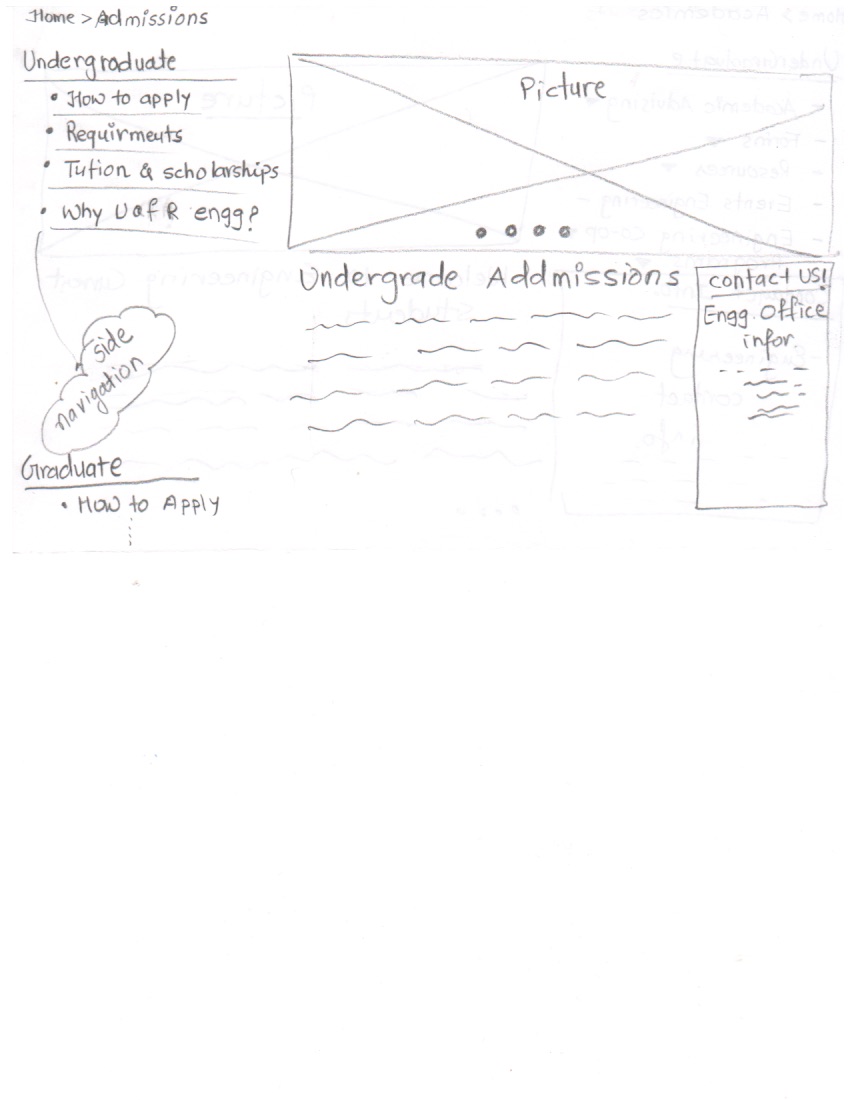 Home > Admissions
Undergraduate
• How to apply
• Requirments
• Tution & scholarships
• Why U of R engg?
side
navigation
Graduate
• How to Apply
Picture
Undergrade Addmissions
contact US!
Engg. Office
infor.